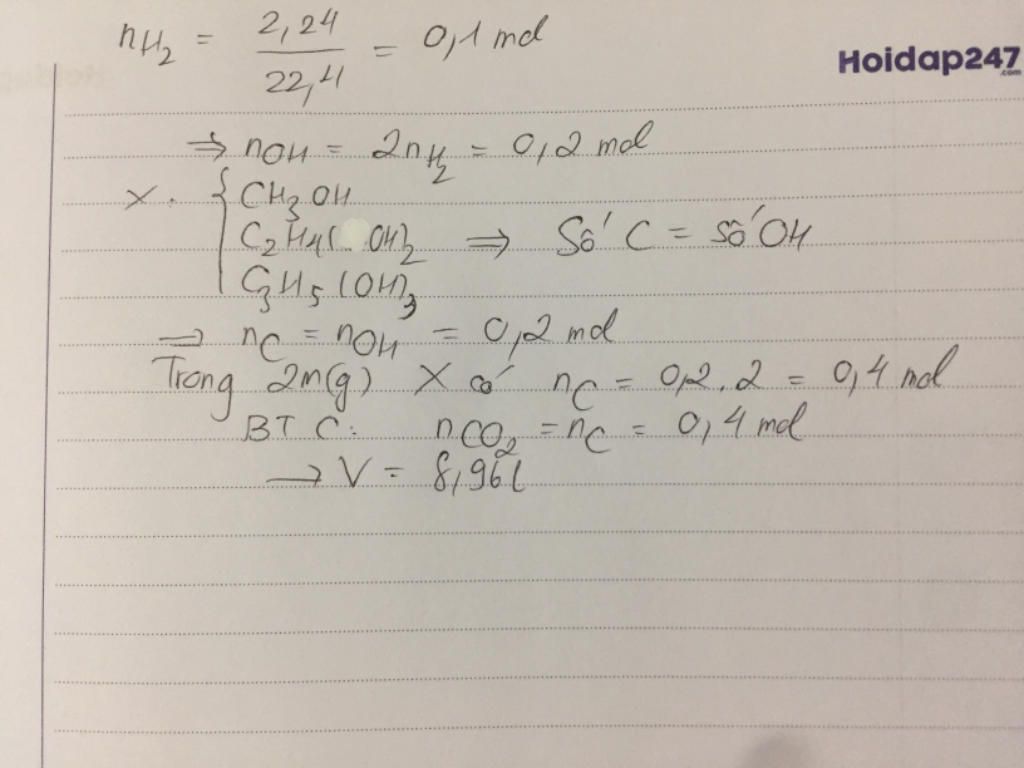 nH₂ = 2,24/22,4 = 0,1 mol
Hoidap247
.com
⇒ nOH = 2nH₂ = 0,2 mol
X. { CH₃OH
C₂H₄(OH)₂ ⇒ Số C = số OH
C₃H₅(OH)₃
⇒ nC = nOH = 0,2 mol
Trong 2m(g) X có nC = 0,2.2 = 0,4 mol
BT C: nCO₂ = nC = 0,4 mol
→ V = 8,96l